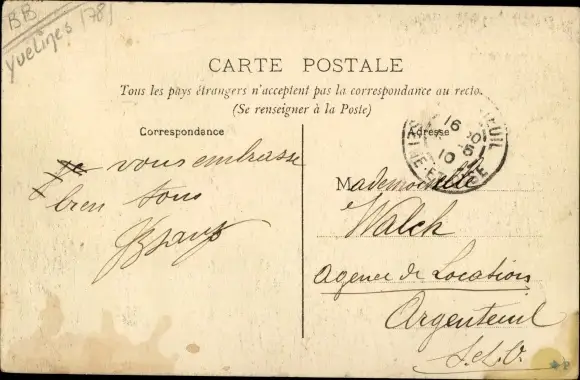 BB
Yvelines (78)
CARTE POSTALE
Tous les pays étrangers n'acceptent pas la correspondance au recto.
(Se renseigner à la Poste)
Correspondance
Je vous embrasse
bien tous
Adresse
Mademoiselle
Walch
Agence de Location
Argenteuil
S.&O.